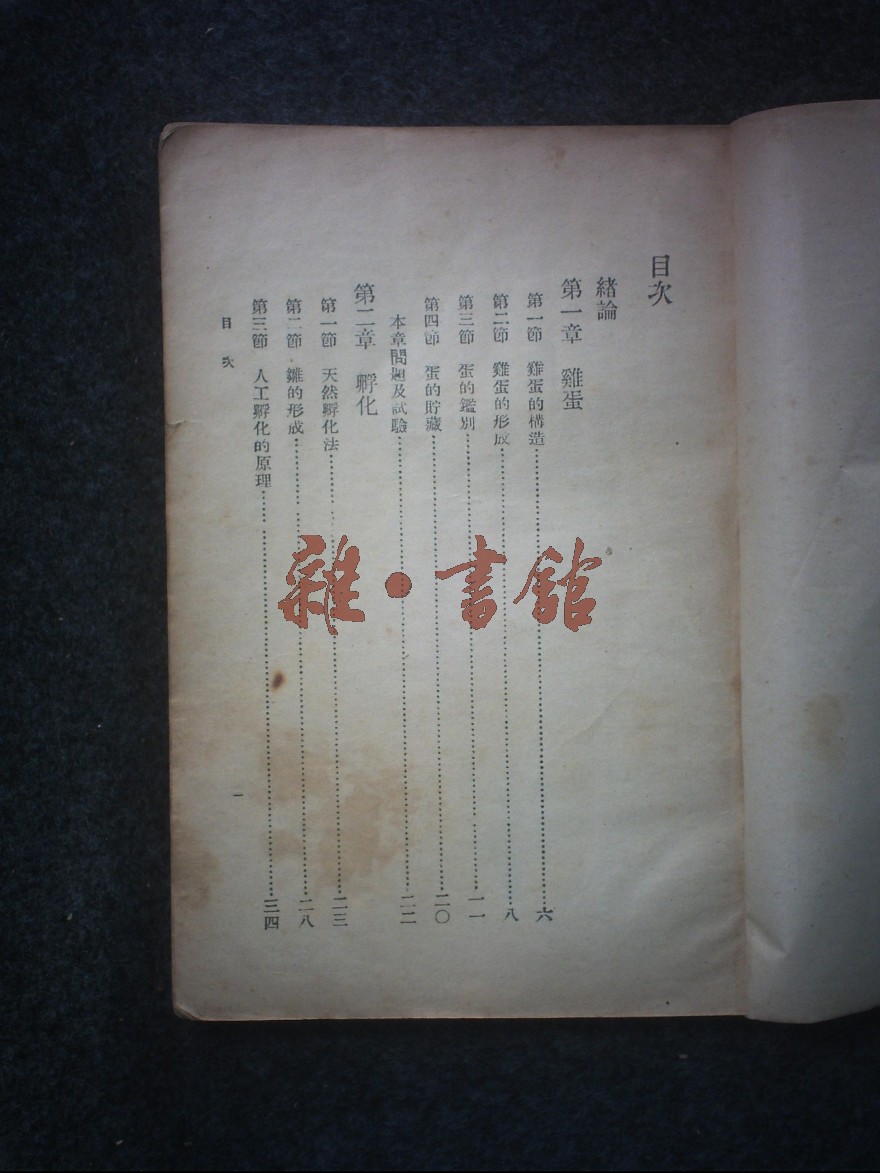 目次
緒論
第一章 雞蛋
第一節 雞蛋的構造……六
第二節 雞蛋的形成……八
第三節 蛋的鑑別……一一
第四節 蛋的貯藏……二〇
本章問題及試驗……二二
第二章 孵化
第一節 天然孵化法……二三
第二節 雛的形成……二八
第三節 人工孵化的原理……三四
目次
一
雜·書館